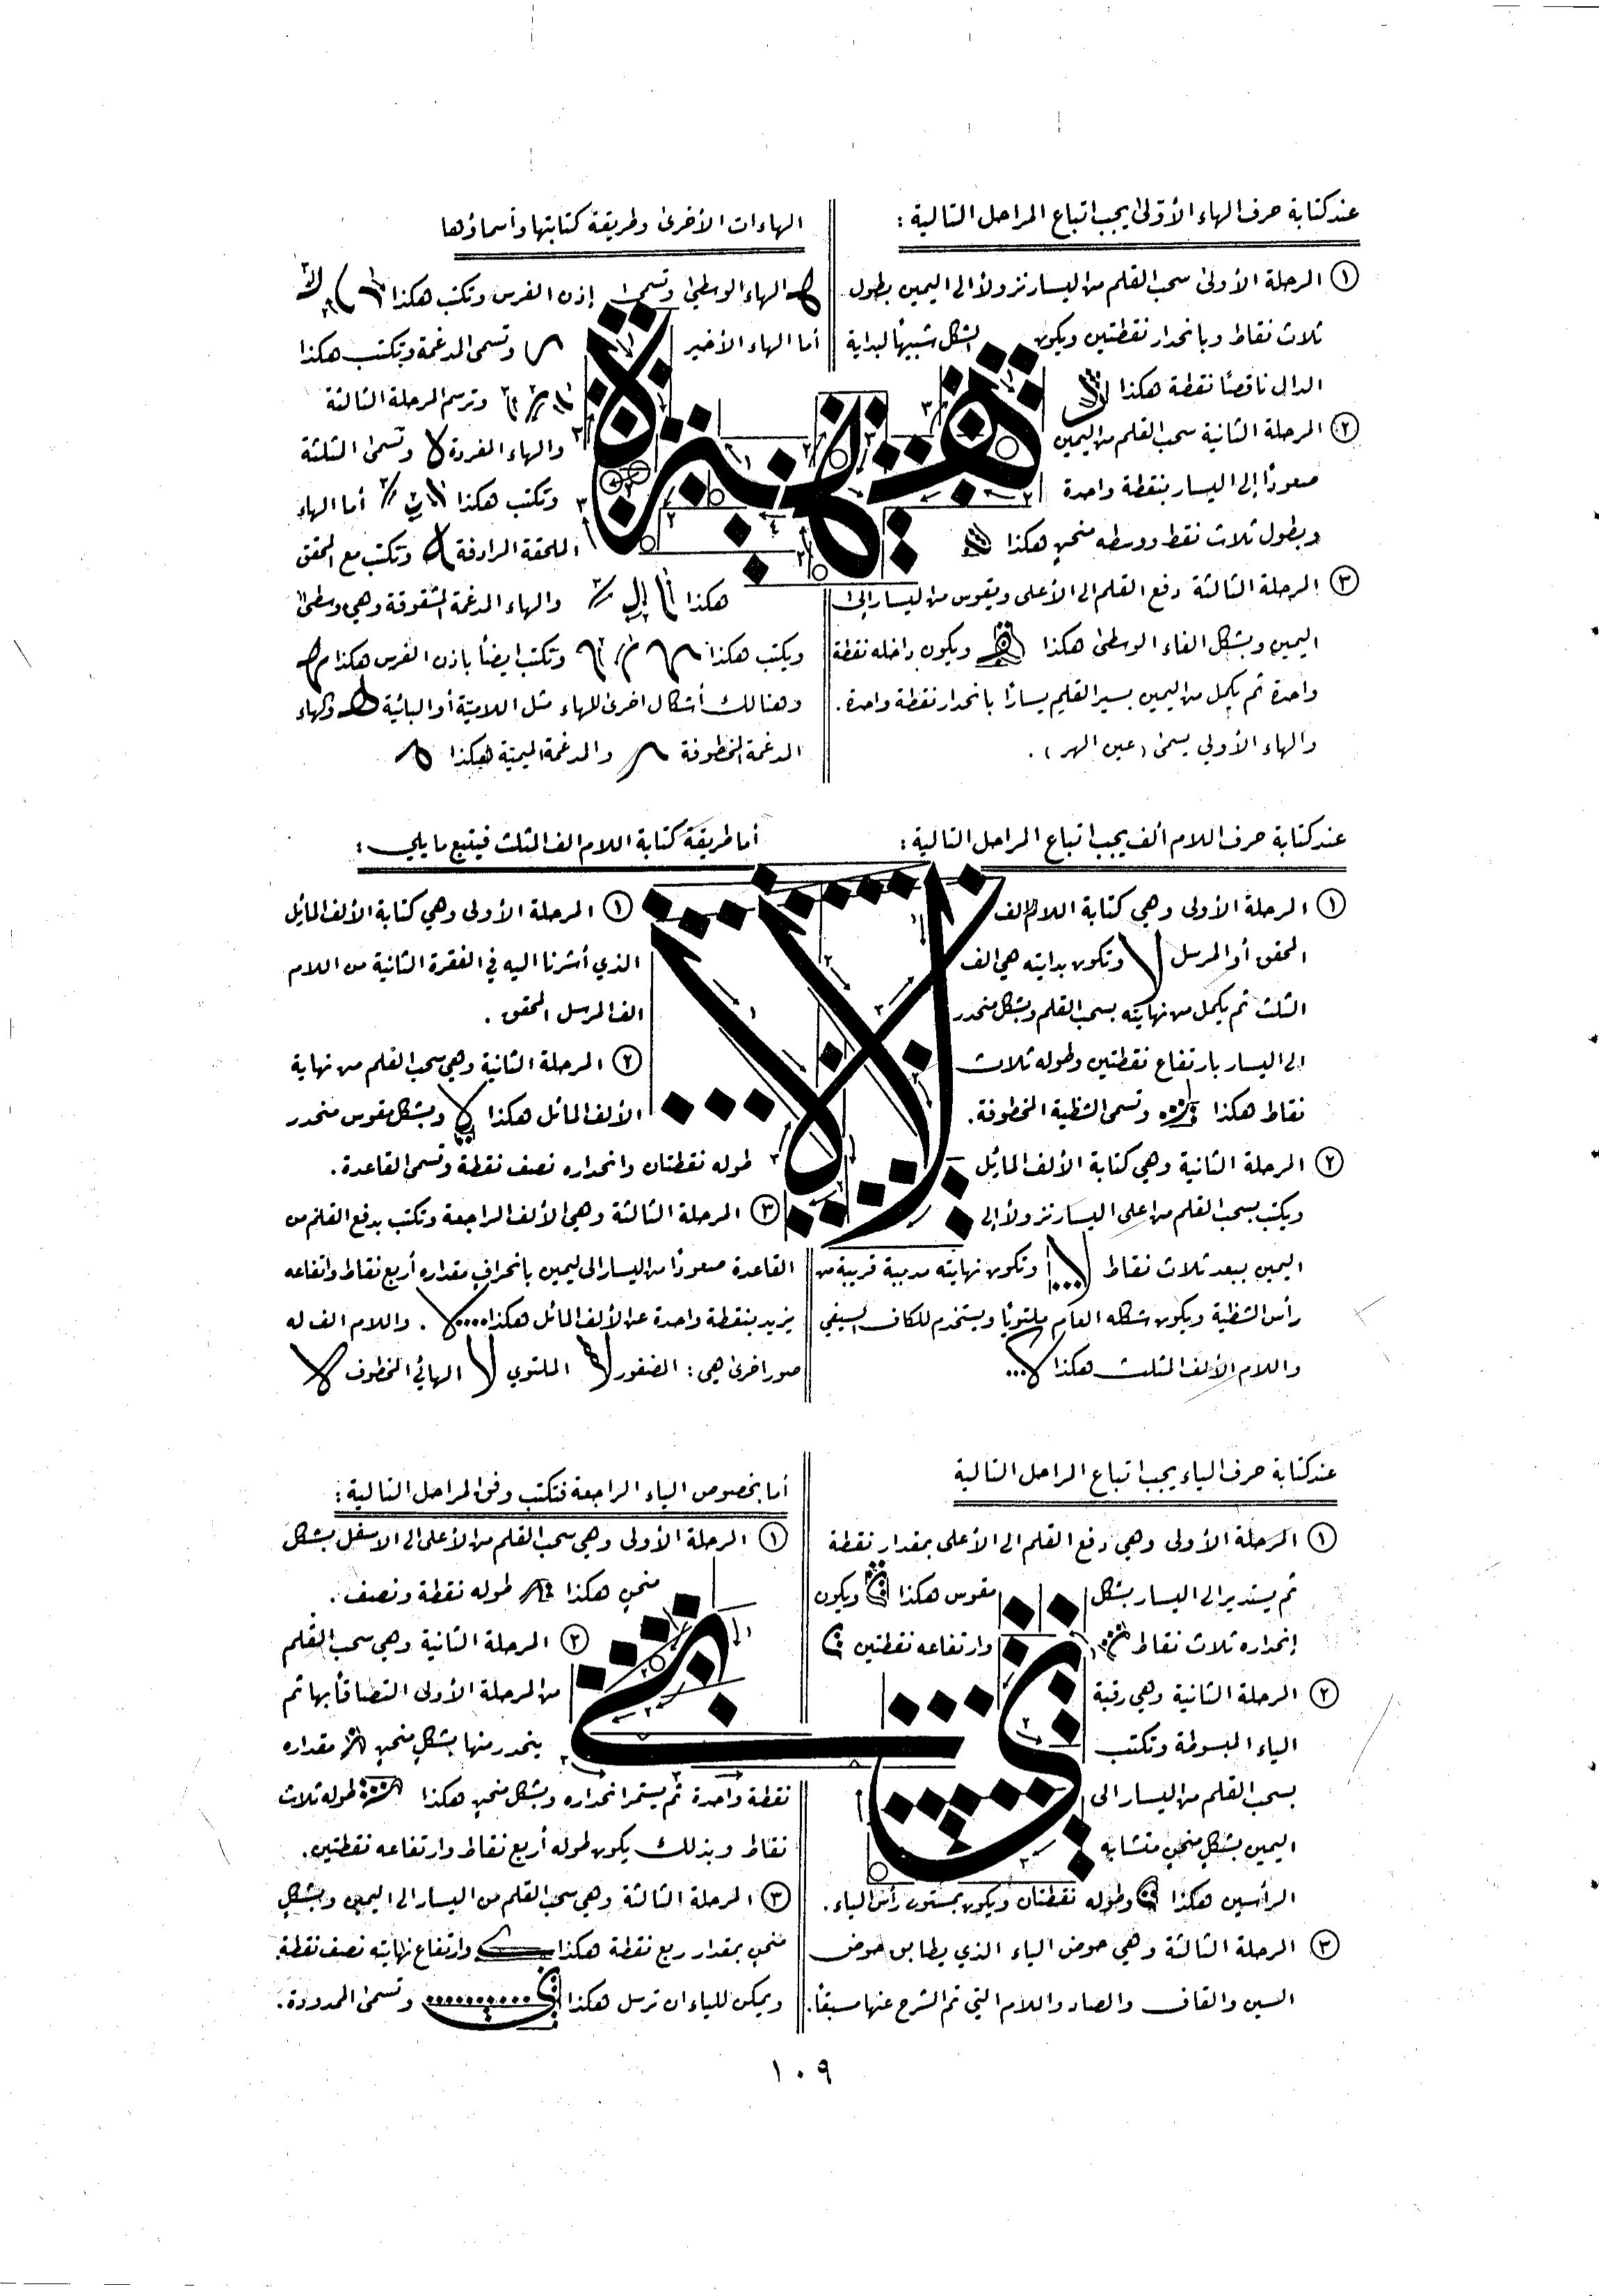 عند كتابة حرف الهاء الأوّلىٰ يجب اتباع المراحل التالية :
① المرحلة الأولىٰ سحب القلم من اليسار نزولاً الى اليمين بطول
ثلاث نقاط وبانحدار نقطتين ويكون الشكل شبيهاً لبداية
الدال ناقصاً نقطة هكذا
② المرحلة الثانية سحب القلم من اليمين
صعوداً إلى اليسار بنقطة واحدة
وبطول ثلاث نقط ووسطه منحنٍ هكذا
③ المرحلة الثالثة دفع القلم الى الأعلى ويقوس من اليسار إلىٰ
اليمين وبشكل الفاء الوسطىٰ هكذا ويكون داخله نقطة
واحدة ثم يكمل من اليمين بسير القلم يساراً بانحدار نقطة واحدة .
والهاء الأولى يسمىٰ (عين الهر) .
الهاءات الأخرىٰ وطريقة كتابتها وأسماؤها
الهاء الوسطىٰ وتسمىٰ إذن الفرس وتكتب هكذا
أما الهاء الأخير وتسمى المدغمة وتكتب هكذا
وترسم المرحلة الثالثة
والهاء المفردة وتسمىٰ المثلثة
وتكتب هكذا أما الهاء
الملحقة المرادفة وتكتب مع المحقق
هكذا والهاء المدغمة المشقوقة وهي وسطىٰ
ويكتب هكذا وتكتب ايضاً باذن الفرس هكذا
وهنالك أشكال اخرىٰ للهاء مثل اللاميّة أو البائية والهاء
المدغمة المخطوفة والمدغمة الميميّة هكذا
عند كتابة حرف اللام ألف يجب اتباع المراحل التالية :
① المرحلة الأولى وهي كتابة اللام الف
المحقق أو المرسل وتكون بدايته هي الف
الثلث ثم يكمل من نهايته بسحب القلم وبشكل منحدر
الى اليسار بارتفاع نقطتين وطوله ثلاث
نقاط هكذا وتسمى الشظية المخطوفة .
② المرحلة الثانية وهي كتابة الألف المائل
ويكتب بسحب القلم من اعلى اليسار نزولاً إلى
اليمين ببعد ثلاث نقاط وتكون نهايته مدببة قريبة من
رأس الشظية ويكون شكله العام ملتوياً ويستخدم للكاف السيفي
واللام الألف المثلث هكذا
أما طريقة كتابة اللام الف المثلث فيتبع ما يلي :
① المرحلة الأولى وهي كتابة الألف المائل
الذي أشرنا اليه في الفقرة الثانية من اللام
الف المرسل المحقق .
② المرحلة الثانية وهي سحب القلم من نهاية
الألف المائل هكذا وبشكل مقوس منحدر
طوله نقطتان وانحداره نصف نقطة وتسمى القاعدة .
③ المرحلة الثالثة وهي الألف الراجعة وتكتب بدفع القلم من
القاعدة صعوداً من اليسار الى ليمين بانحراف مقداره أربع نقاط وارتفاعه
يزيد بنقطة واحدة عن الألف المائل هكذا . واللام الف له
صور اخرىٰ هي : المضفور الملتوي الهائي المخطوف
عند كتابة حرف الياء يجب اتباع المراحل التالية
① المرحلة الأولى وهي دفع القلم الى الأعلى بمقدار نقطة
ثم يستدير الى اليسار بشكل مقوس هكذا ويكون
إنحداره ثلاث نقاط وارتفاعه نقطتين
② المرحلة الثانية وهي رقبة
الياء المبسوطة وتكتب
بسحب القلم من اليسار الى
اليمين بشكلٍ منحنٍ متشابه
الرأسين هكذا وطوله نقطتان ويكون بمستوىٰ رأس الياء .
③ المرحلة الثالثة وهي حوض الياء الذي يطابق حوض
السين والقاف والصاد واللام التي تم الشرح عنها مسبقاً .
أما بخصوص الياء الراجعة فتكتب وفق المراحل التالية :
① المرحلة الأولى وهي سحب القلم من الأعلى الى الاسفل بشكل
منحنٍ هكذا طوله نقطة ونصف .
② المرحلة الثانية وهي سحب القلم
من المرحلة الأولى التصاقاً بها ثم
ينحدر منها بشكلٍ منحنٍ مقداره
نقطة واحدة ثم يستمر انحداره وبشكل منحنٍ هكذا طوله ثلاث
نقاط وبذلك يكون طوله أربع نقاط وارتفاعه نقطتين .
③ المرحلة الثالثة وهي سحب القلم من اليسار الى اليمين وبشكلٍ
منحنٍ بمقدار ربع نقطة هكذا وارتفاع نهايته نصف نقطة
ويمكن للياء ان ترسل هكذا وتسمىٰ الممدودة .
١٠٩